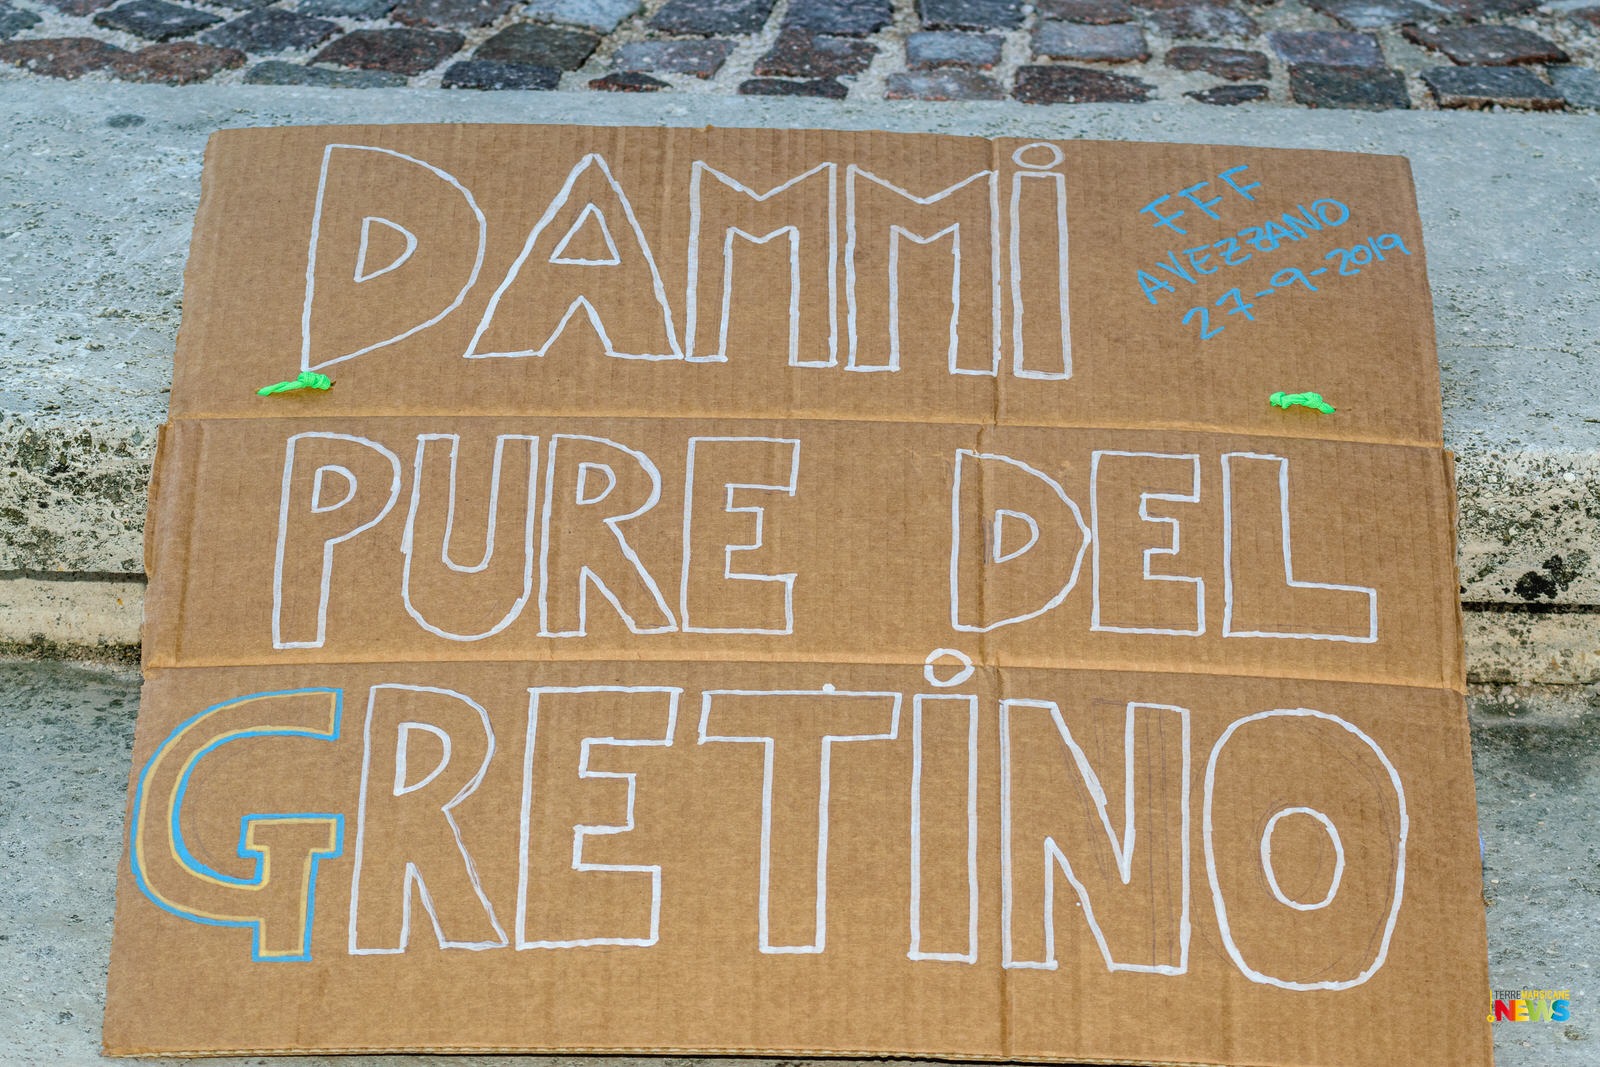 DAMMi
FFF
AVEZZANO
27-9-2019
PURE DEL
GRETiNO
TERRE MARSICANE
NEWS